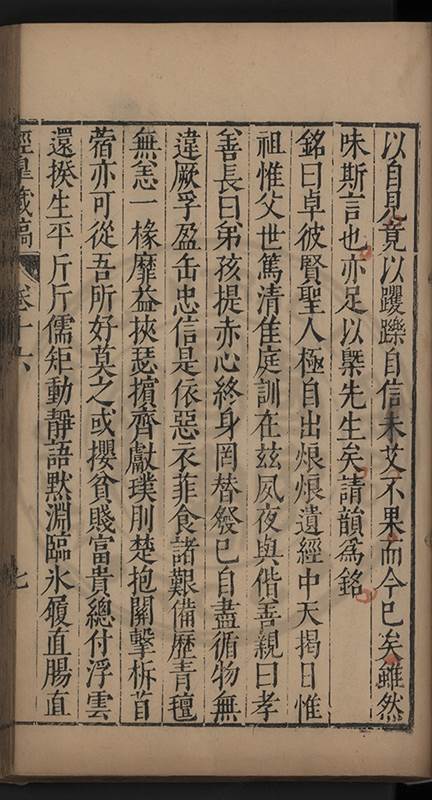 以自見竟以躩躒自信未艾不果而今已矣雖然
昧斯言也亦足以槩先生矣請韻為銘
銘曰卓彼賢聖人極自出烺烺遺經中天揭日惟
祖惟父世篤清隹庭訓在兹夙夜與偕善親曰孝
善長曰弟孩提赤心終身罔替發已自盡循物無
違厥孚盈缶忠信是依惡衣菲食諸艱備歷青氊
無恙一椽靡益挾瑟擯齊獻璞刖楚抱關擊柝首
蓿亦可從吾所好莫之或攖貧賤富貴總付浮雲
還揆生平斤斤儒矩動靜語默淵臨氷履直腸直
藏稿 卷十六 七